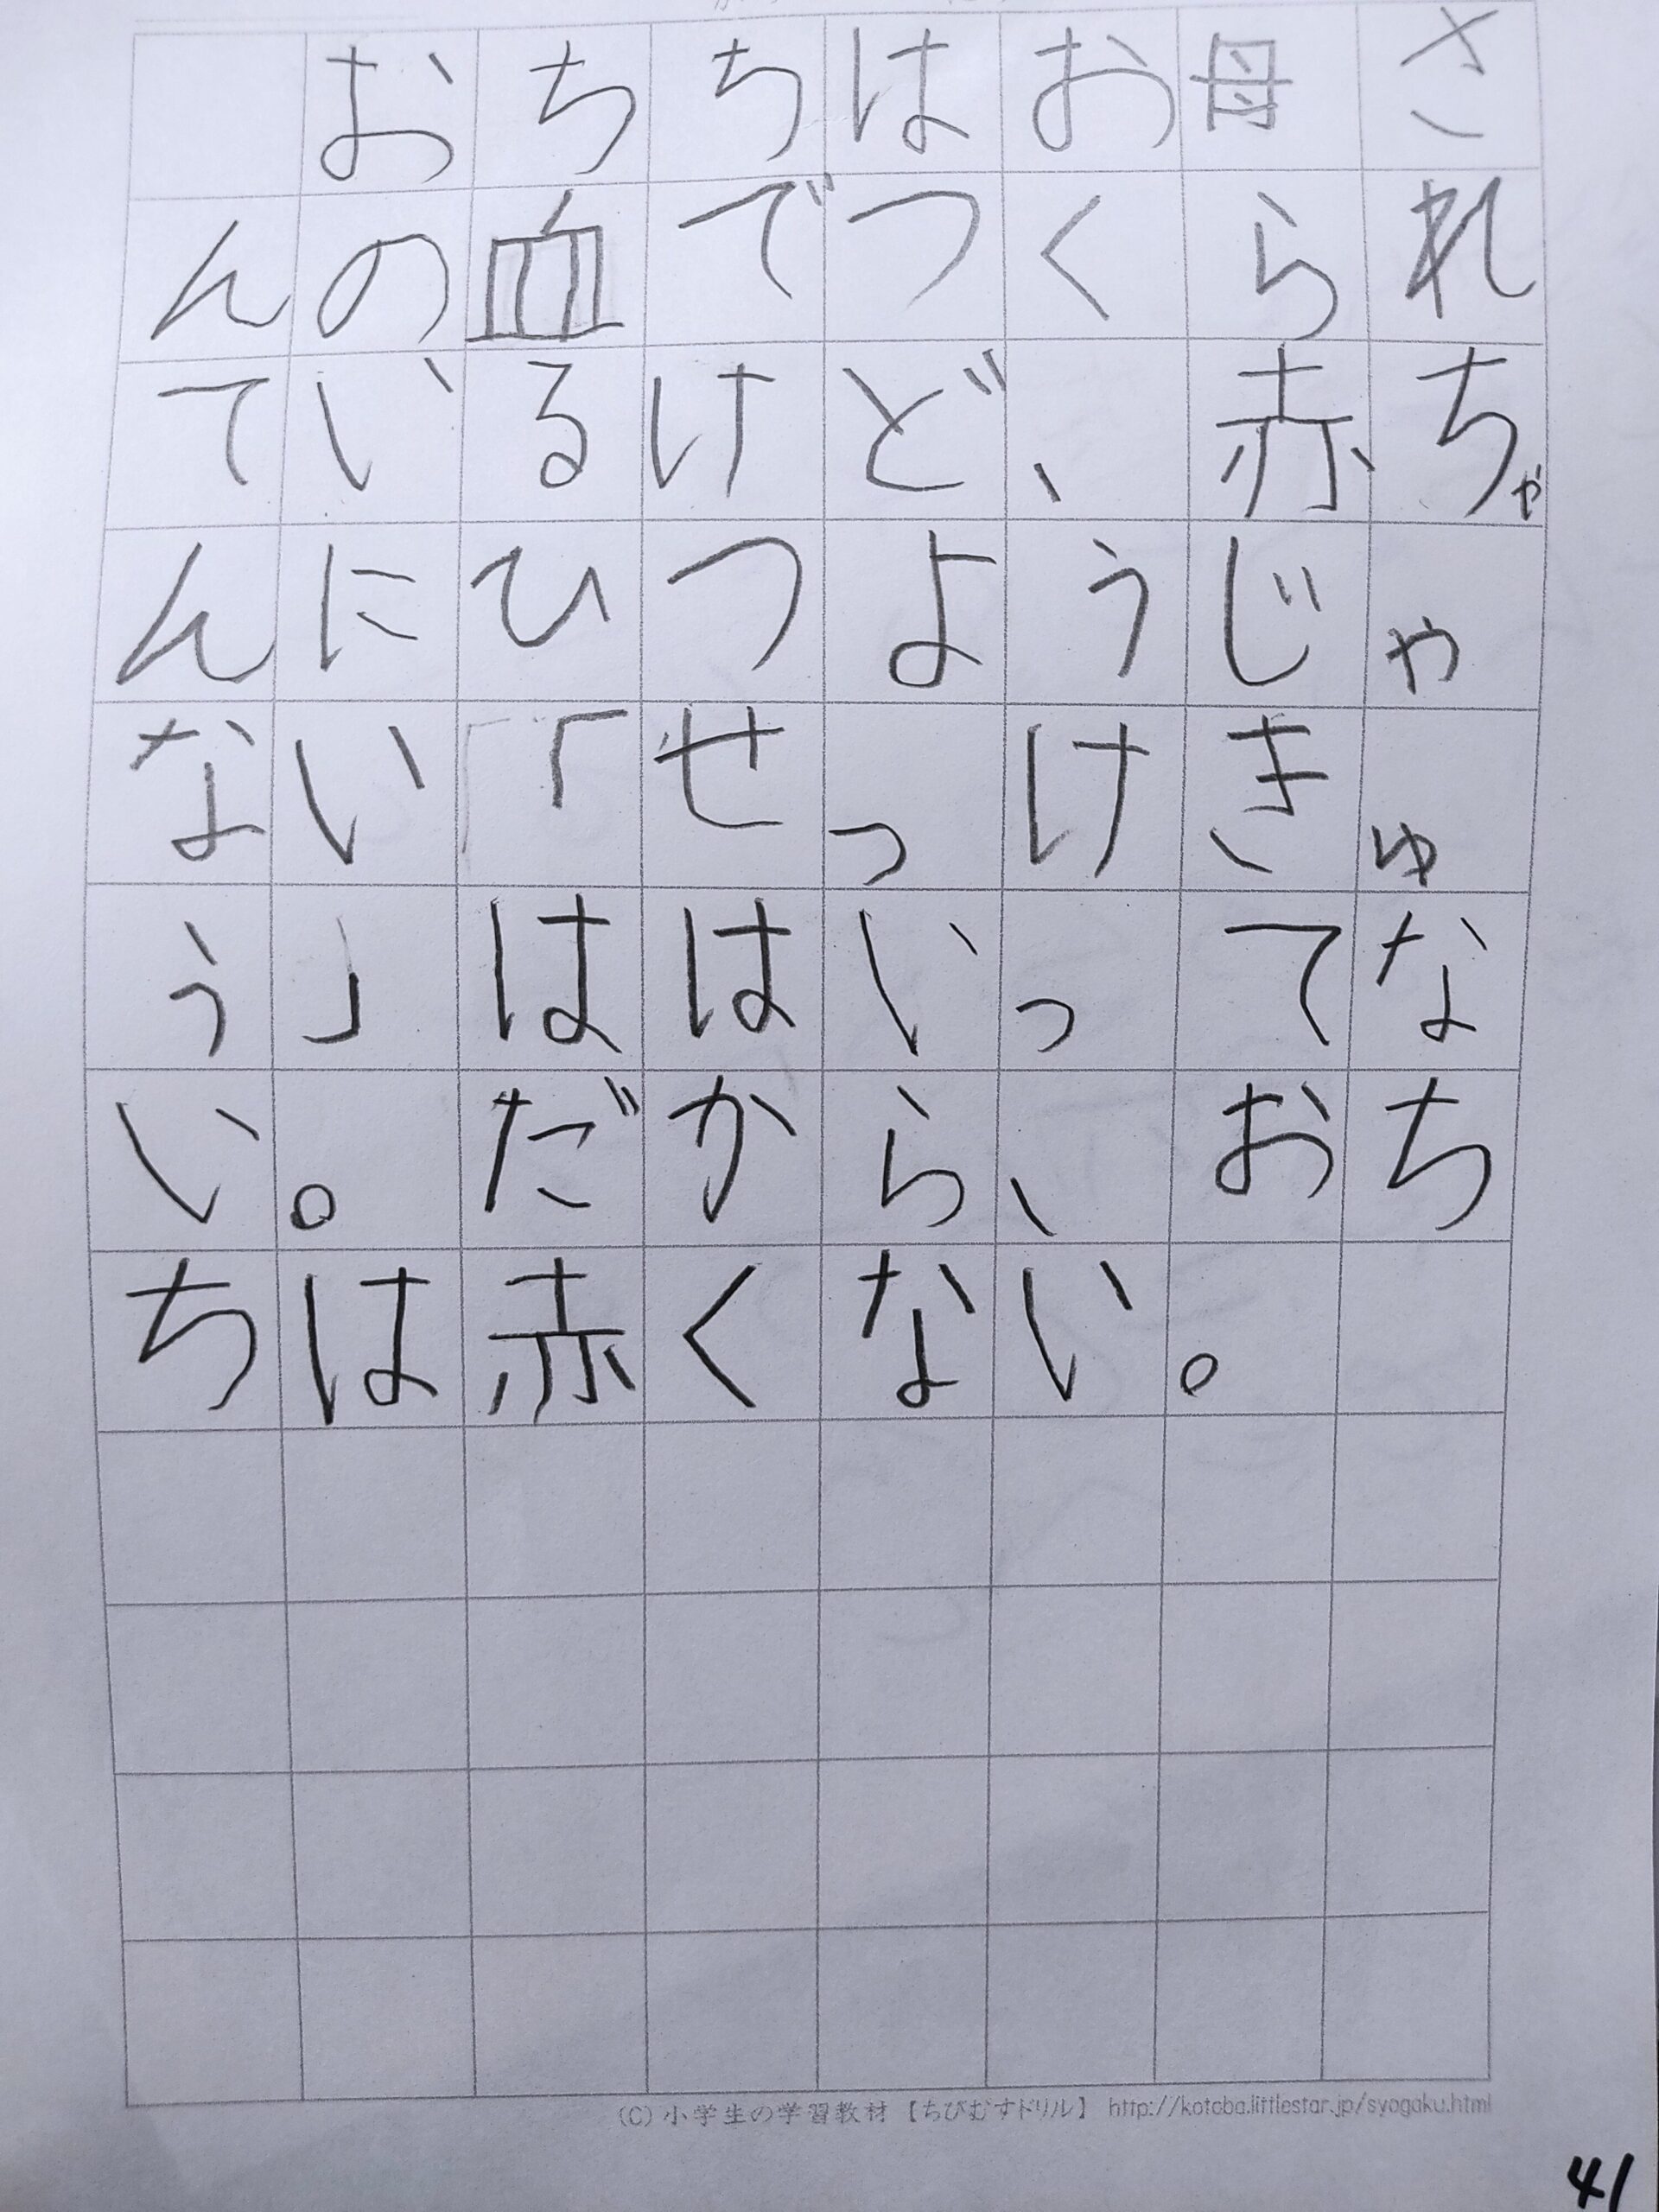 おちちはお母さ
んの血でつくられ
ているけど、赤ちゃ
んにひつようじゃ
ない「せっけきゅ
う」ははいってな
い。だから、おち
ちは赤くない。
(C) 小学生の学習教材【ちびむすドリル】 http://kotoba.littlestar.jp/syogaku.html
41